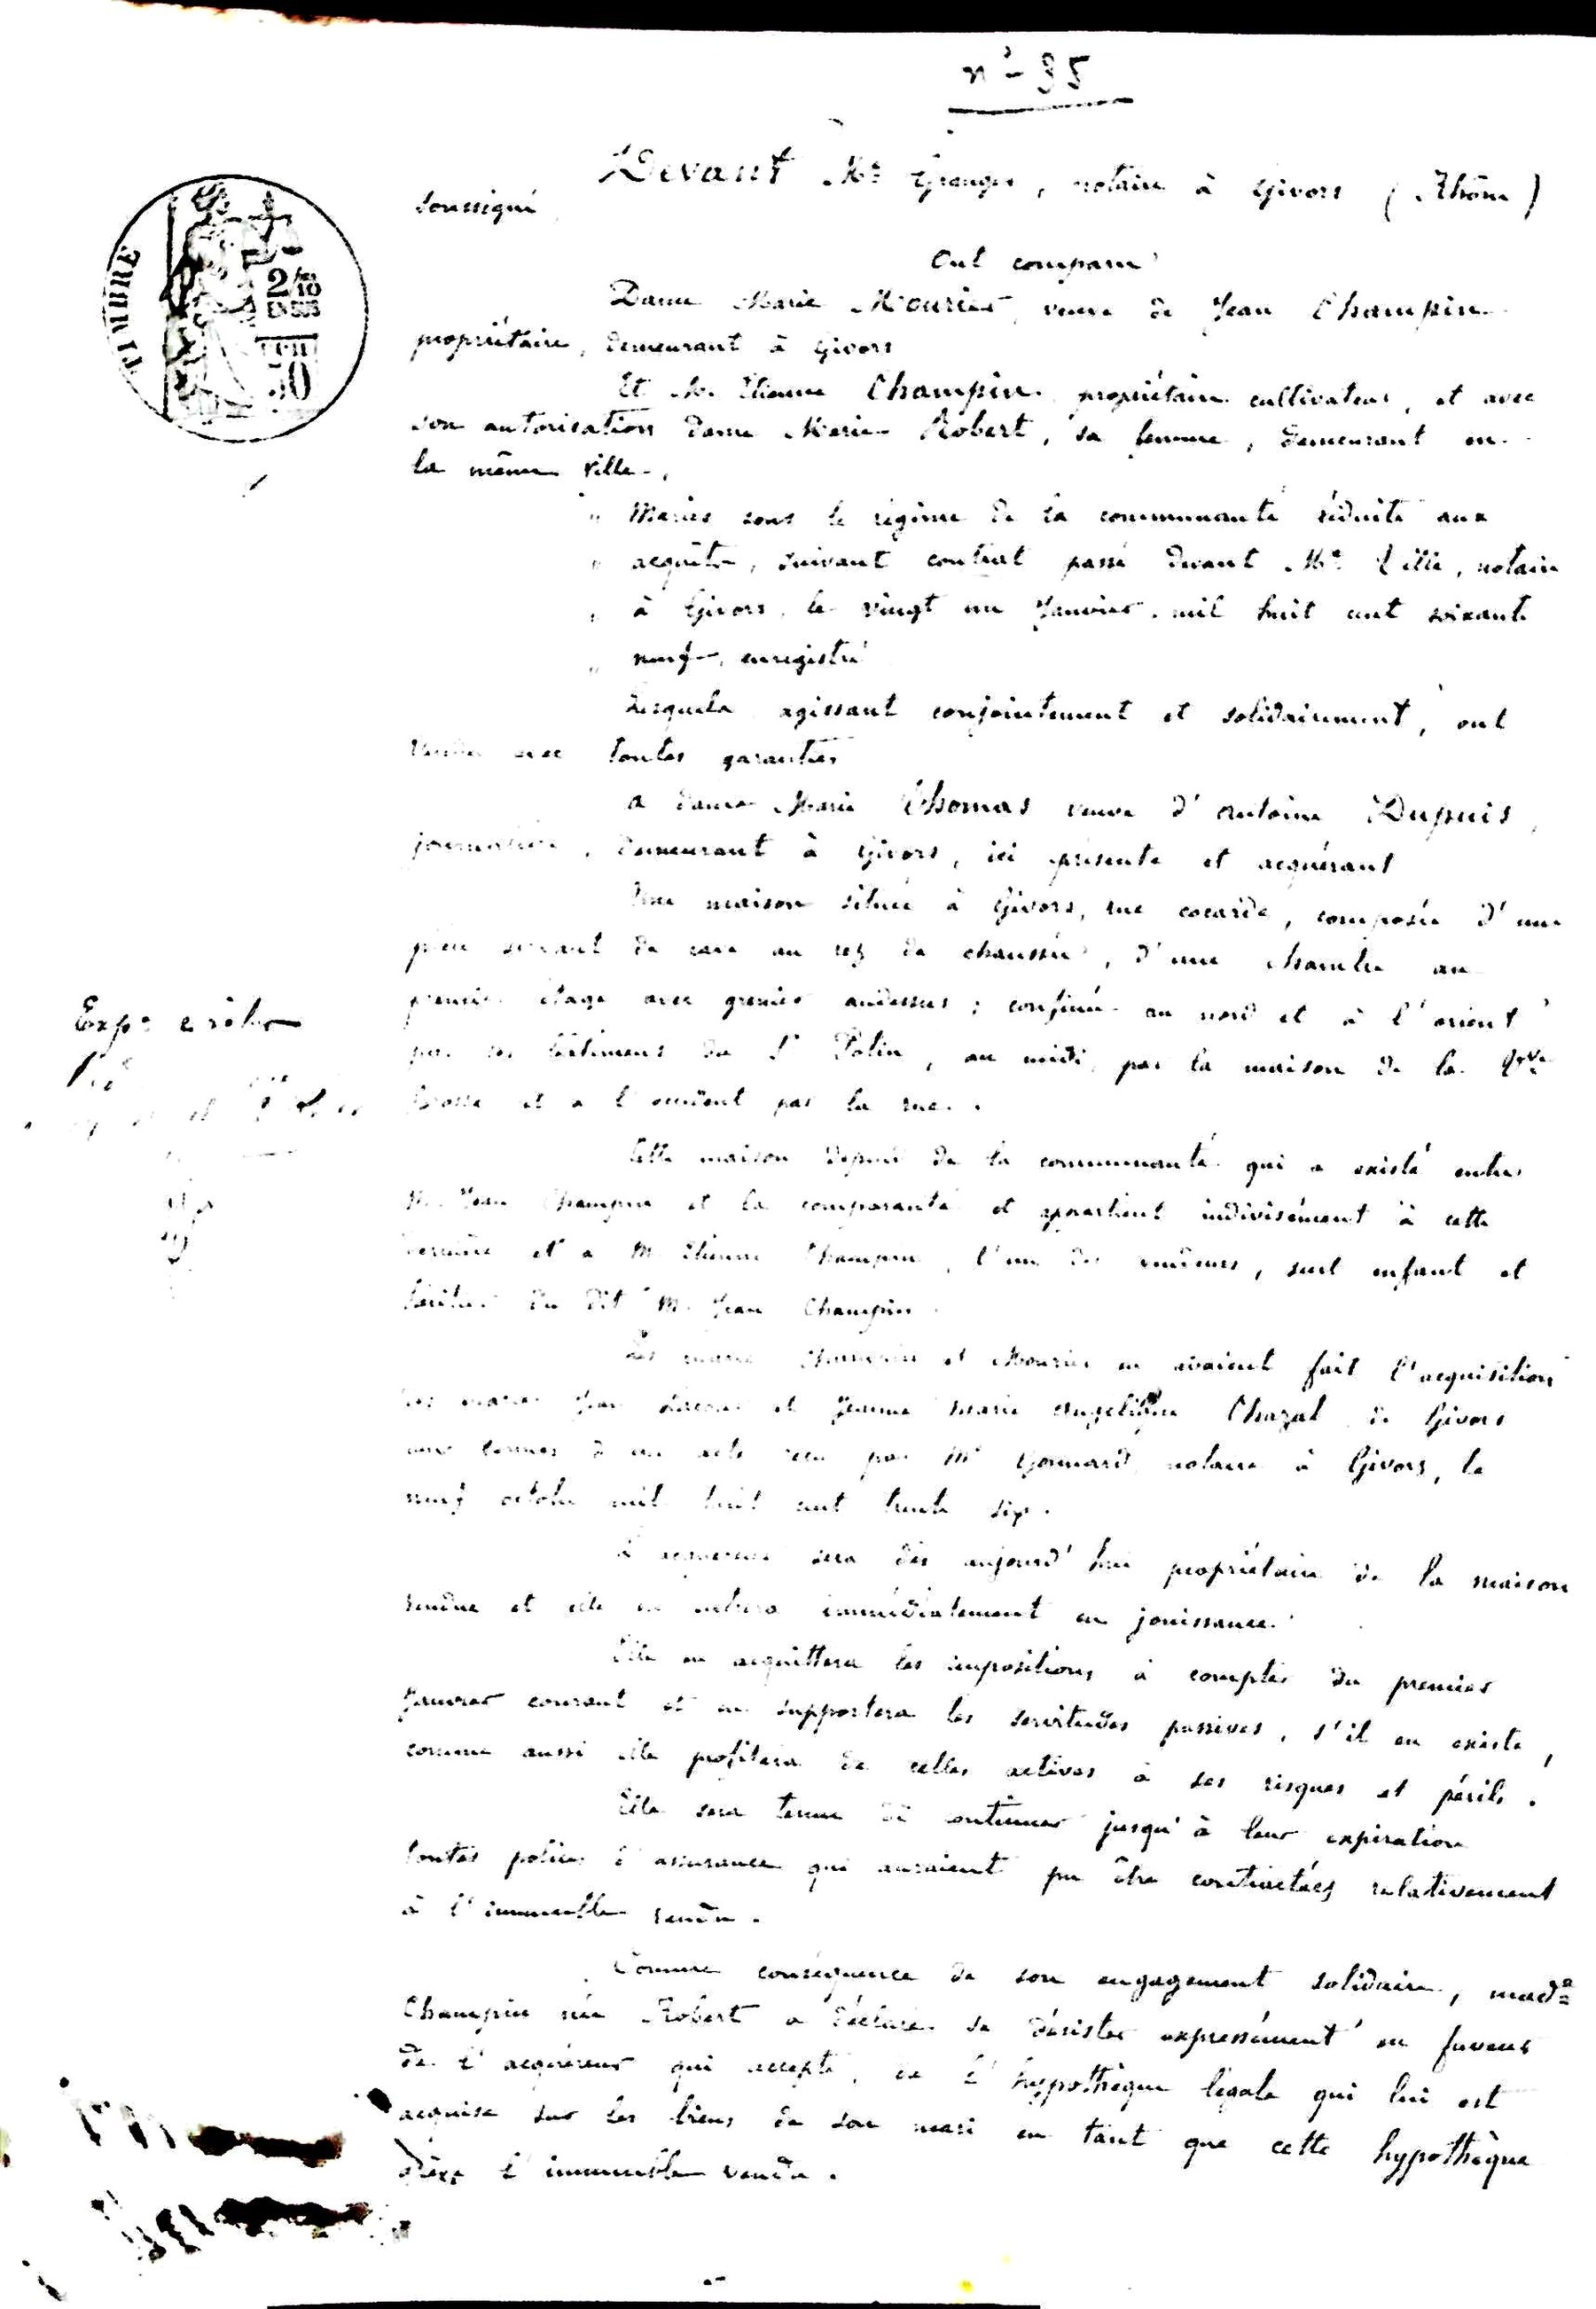 n° 35
Devant Me Granger, notaire à Givors (Rhône)
soussigné
Ont comparu
Dame Marie Mourier veuve de Jean Champin
propriétaire, demeurant à Givors
Et M. Etienne Champin propriétaire cultivateur, et avec
son autorisation dame Marie Robert, sa femme, demeurant en
la même ville,
TIMBRE
2/10
EN SUS
50
" Mariés sous le régime de la communauté réduite aux
" acquêts, suivant contrat passé devant Me, notaire
" à Givors, le vingt un Janvier mil huit cent soixante
" neuf, enregistré
Lesquels agissant conjointement et solidairement, ont
vendu avec toutes garanties
à dame Marie Thomas veuve d'Antoine Dupuis,
journalière, demeurant à Givors, ici présente et acquérant
Une maison située à Givors, rue cocarde, composée d'une
pièce servant de cave au rez de chaussée, d'une chambre au
premier étage avec grenier audessus; confinée au nord et à l'orient
par les bâtiments du Sr Polin, au midi, par la maison de la Vve
Brosse et à l'occident par la rue.
Expon 2 rôles
Cette maison dépend de la communauté qui a existé entre
M. Jean Champin et la comparante et appartient indivisément à cette
dernière et à M. Etienne Champin, l'un des vendeurs, seul enfant et
héritier du dit M. Jean Champin.
Les mariés Champin et Mourier en avaient fait l'acquisition
des mariés Jean et Jeanne Marie Angélique Chazal de Givors
aux termes d'un acte reçu par Me Gonnard notaire à Givors, le
neuf octobre mil huit cent trente six.
L'acquéreur sera dès aujourd'hui propriétaire de la maison
vendue et elle en entrera immédiatement en jouissance.
Elle en acquittera les impositions à compter du premier
Janvier courant et en supportera les servitudes passives, s'il en existe,
comme aussi elle profitera de celles actives à ses risques et périls.
Elle sera tenue de continuer jusqu'à leur expiration
toutes polices d'assurance qui auraient pu être contractées relativement
à l'immeuble vendu.
Comme conséquence de son engagement solidaire, made
Champin née Robert a déclaré se désister expressément en faveur
de l'acquéreur qui accepte, de l'hypothèque légale qui lui est
acquise sur les biens de son mari en tant que cette hypothèque
grève l'immeuble vendu.